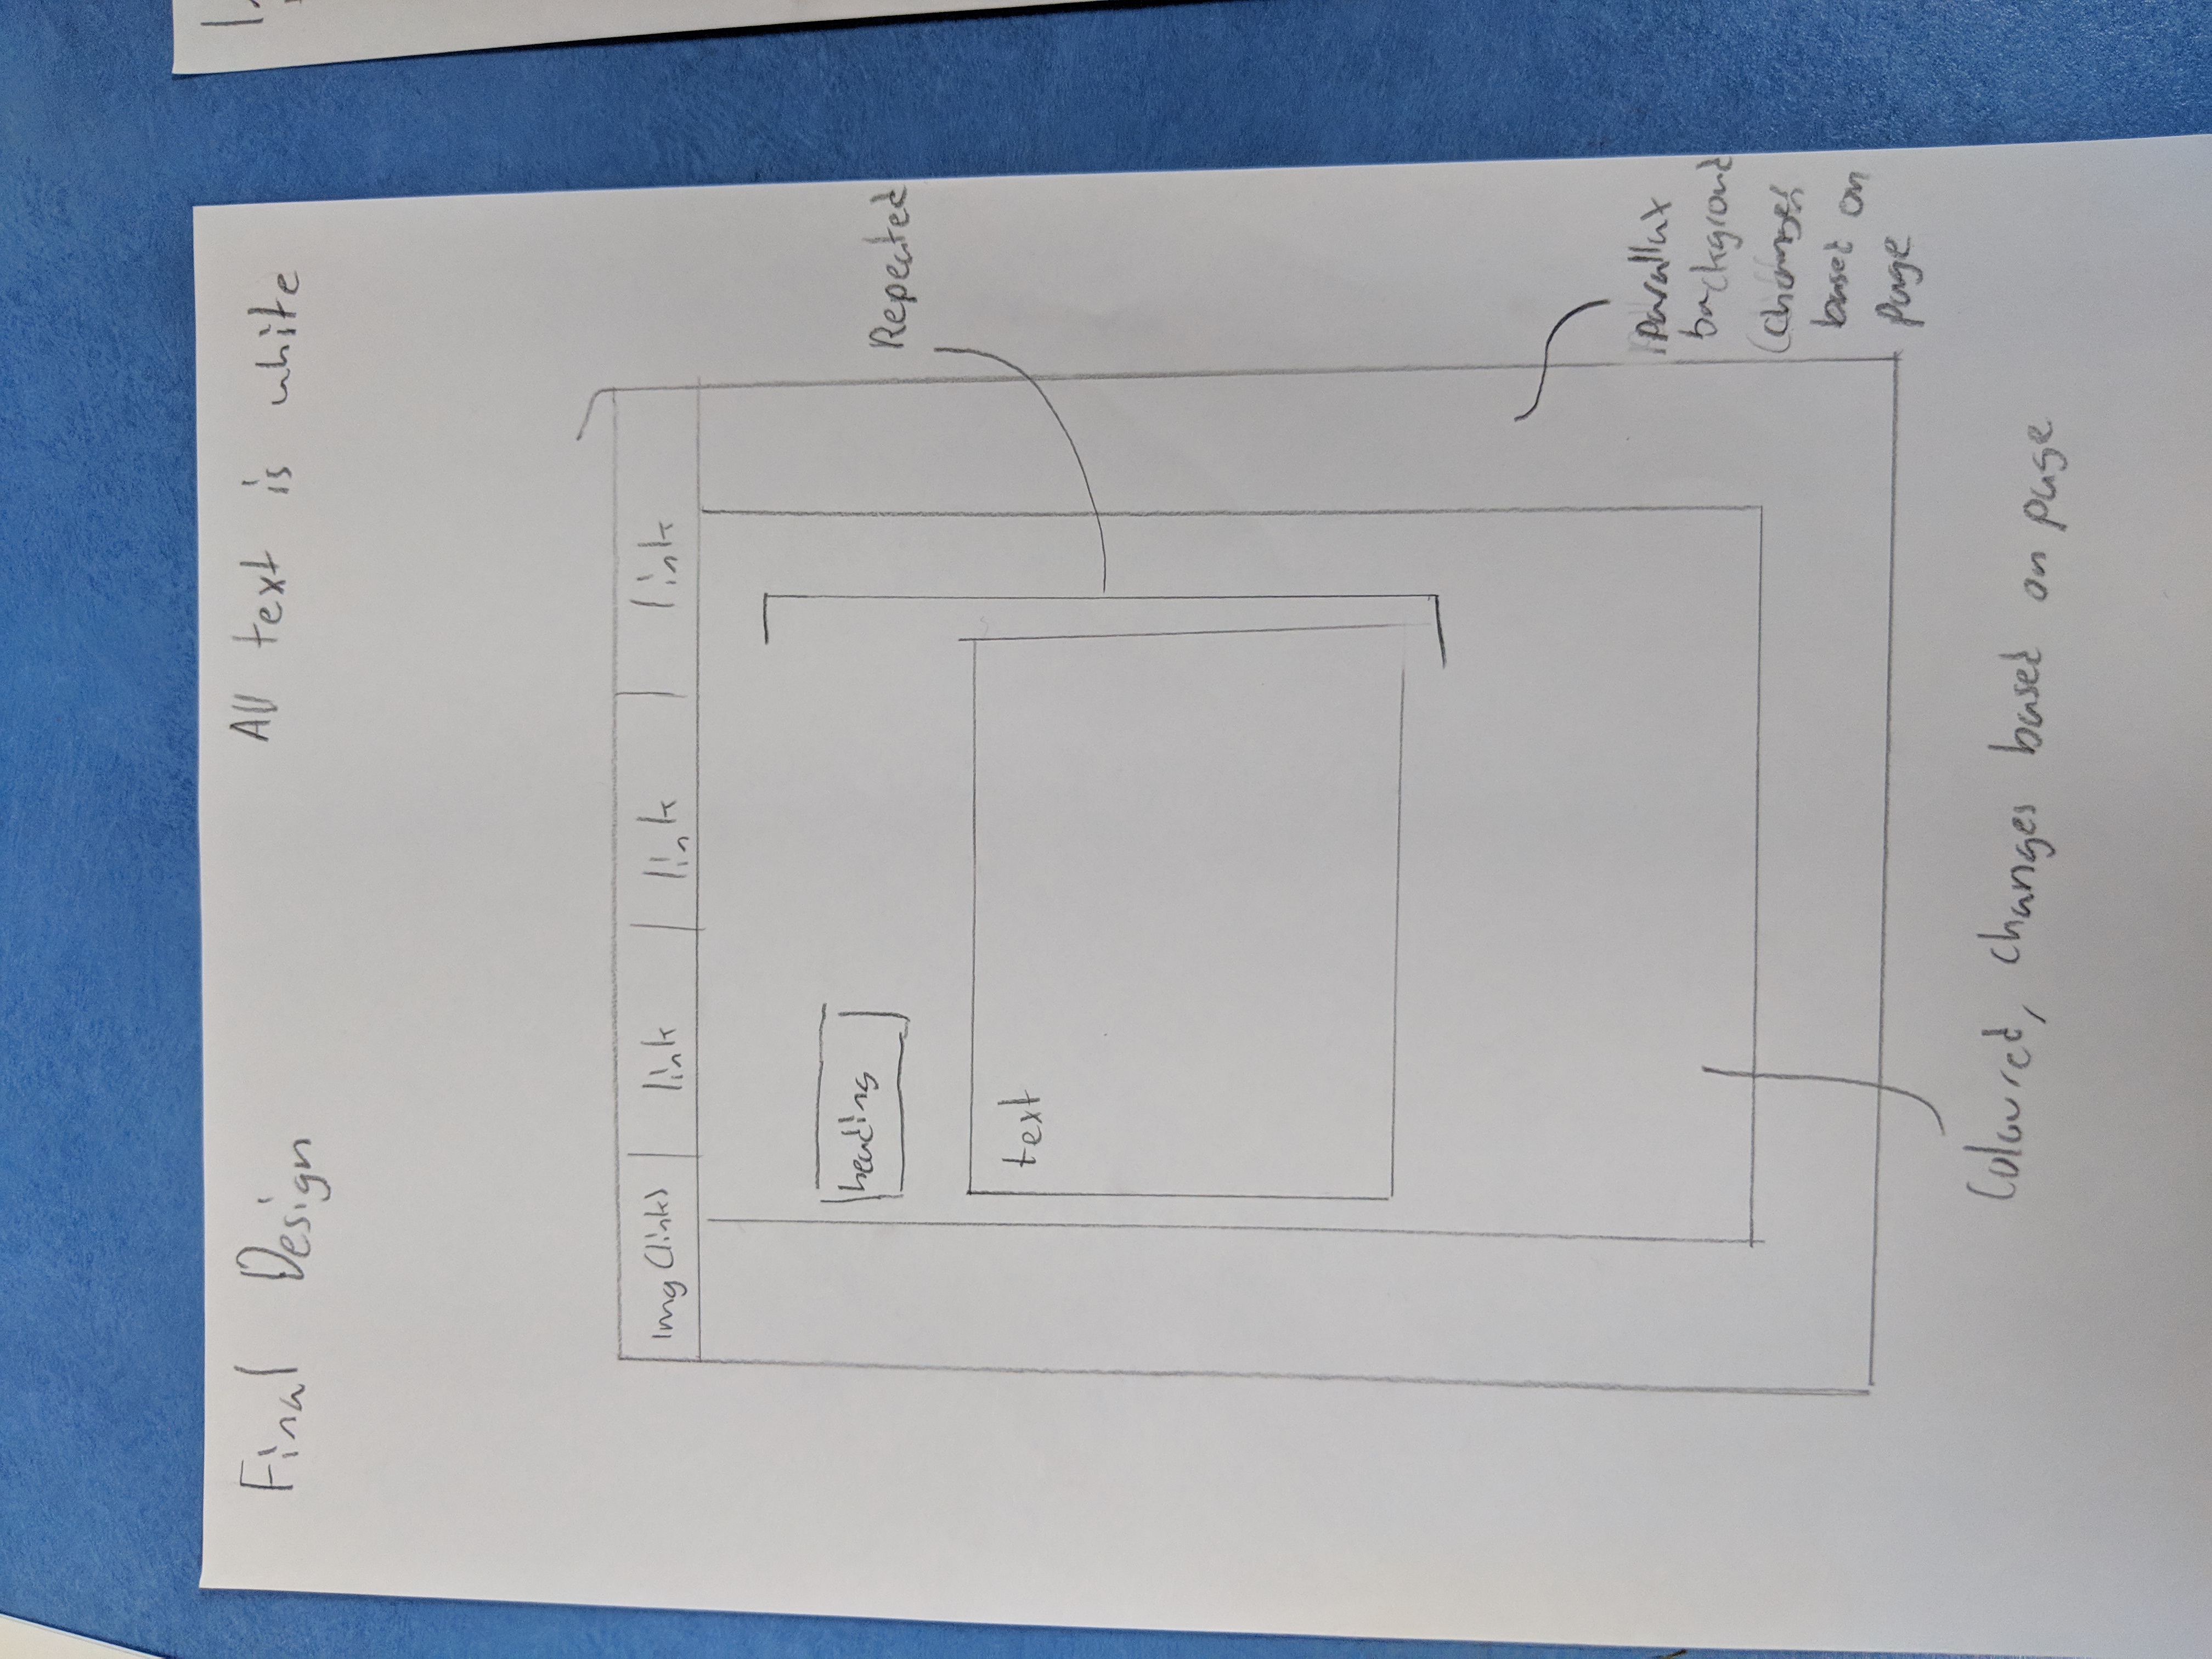 Final Design
All text is white
Img (link)
link
link
link
heading
text
Repeated
Parallax
background
(changes
based on
page
Coloured, changes based on page